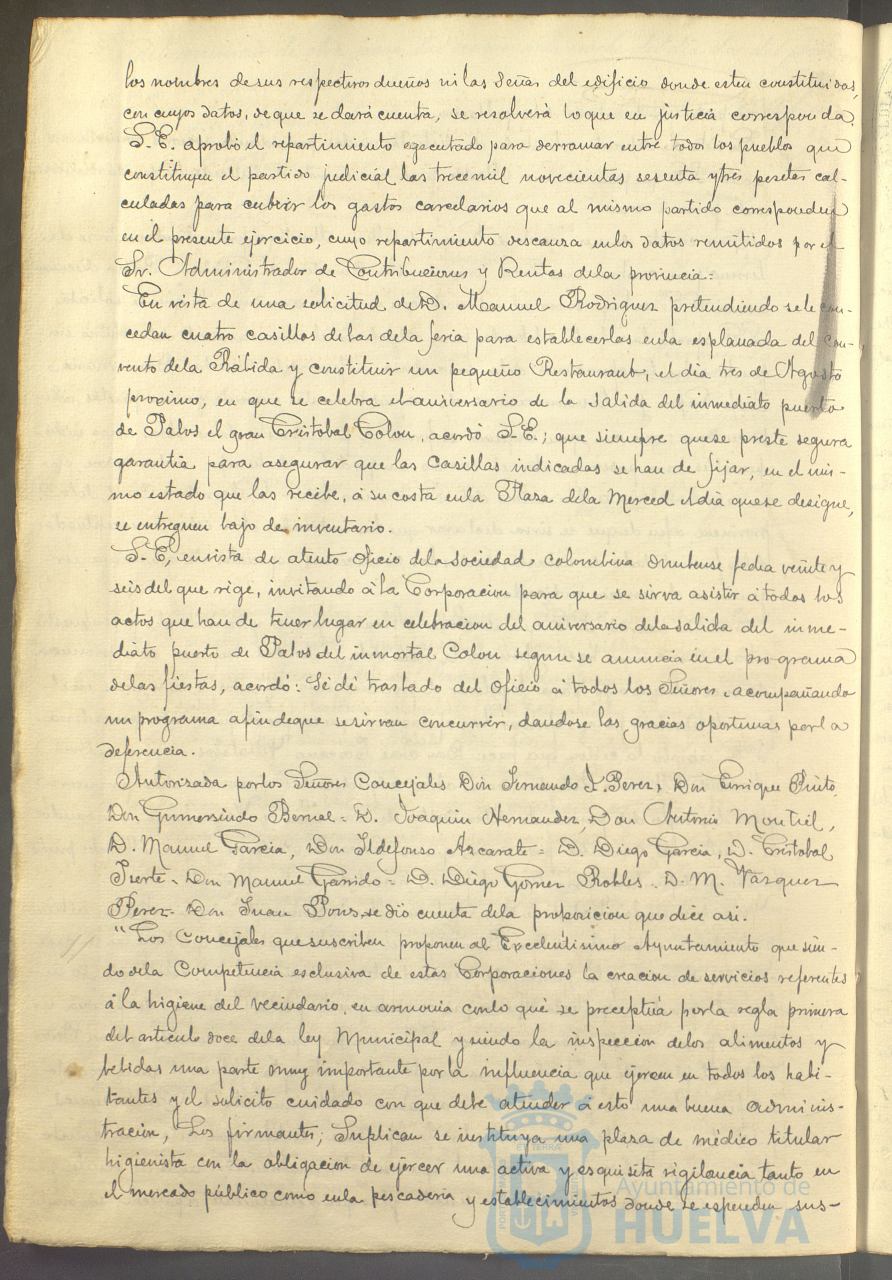 los nombres de sus respectivos dueños ni las señas del edificio donde esten constituidas,
con cuyos datos, de que se dará cuenta, se resolverá lo que en justicia corresponda.
S. E. aprobó el repartimiento egecutado para derramar entre todos los pueblos que
constituyen el partido judicial las trece mil novecientas sesenta y tres pesetas cal-
culadas para cubrir los gastos carcelarios que al mismo partido corresponden
en el presente ejercicio, cuyo repartimiento descanza en los datos remitidos por el
Sr. Administrador de Contribuciones y Rentas de la provincia=
En vista de una solicitud de D. Manuel Rodriguez pretendiendo se le con-
cedan cuatro casillas de las de la feria para establecerlas en la esplanada del con-
vento de la Rábida y constituir un pequeño Restaurant, el dia tres de Agosto
proximo, en que se celebra el aniversario de la salida del inmediato puerto
de Palos el gran Cristobal Colon, acordó S. E.; que siempre que se preste segura
garantia para asegurar que las casillas indicadas se han de fijar, en el mis-
mo estado que las recibe, á su costa en la Plaza de la Merced el dia que se designe,
se entreguen bajo de inventario.
S. E, en vista de atento oficio de la sociedad colombina onubense fecha veinte y
seis del que rige, invitando á la Corporacion para que se sirva asistir á todos los
actos que han de tener lugar en celebracion del aniversario de la salida del inme-
diato puerto de Palos del inmortal Colon segun se anuncia en el programa
de las fiestas, acordó: Se dé traslado del oficio á todos los Señores acompañando
un programa a fin de que se sirvan concurrir, dandose las gracias oportunas por la
deferencia.
Autorizada por los Señores Concejales Don Fernando Perez, Don Enrique Pinto,
Don Gumersindo Bernal = D. Joaquin Hernandez, Don Antonio Montiel,
D. Manuel Garcia, Don Ildefonso Azcarate = D. Diego Garcia, D. Cristobal
Don Manuel Garrido = D. Diego Gomez Robles. D. M. Vazquez
Perez- Don Juan Pons, se dió cuenta de la proposicion que dice asi.
"Los Concejales que suscriben proponen al Excelentisimo Ayuntamiento que sien-
do de la Competencia esclusiva de estas Corporaciones la creacion de servicios referentes
á la higiene del vecindario, en armonia con lo que se preceptúa por la regla primera
del articulo doce de la ley Municipal y siendo la inspeccion de los alimentos y
bebidas una parte muy importante por la influencia que ejercen en todos los habi-
tantes y el solicito cuidado con que debe atender á esto una buena adminis-
tracion, Los firmantes; Suplican se instituya una plaza de médico titular
higienista con la obligacion de ejercer una activa y esquisita vigilancia tanto en
el mercado público como en la pescaderia y establecimientos donde se espenden sus-
Ayuntamiento de
HUELVA